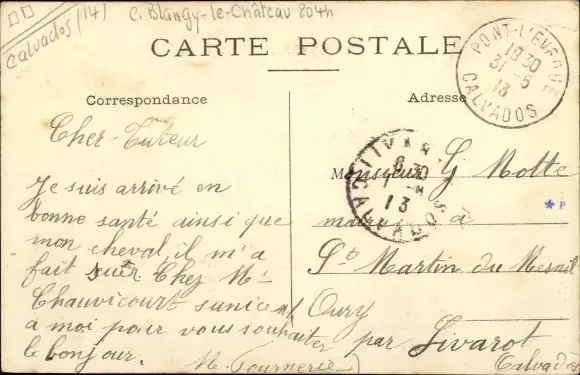 Calvados (14) C. Blangy-le-Château 204h
CARTE POSTALE
Correspondance
Adresse
PONT-L'EVEQUE
19 30
31 - 5
13
CALVADOS
Cher-Tuteur
Je suis arrivé en
bonne santé ainsi que
mon cheval, il m'a
fait Chez Mr
Chauvicourt sunicent
a moi pour vous souhaiter
le bonjour.
M. Tournerie
LIVAROT
6 30
13
CALVADOS
Monsieur G Motte
à
St Martin du Mesnil
Oury
par Livarot
Calvados